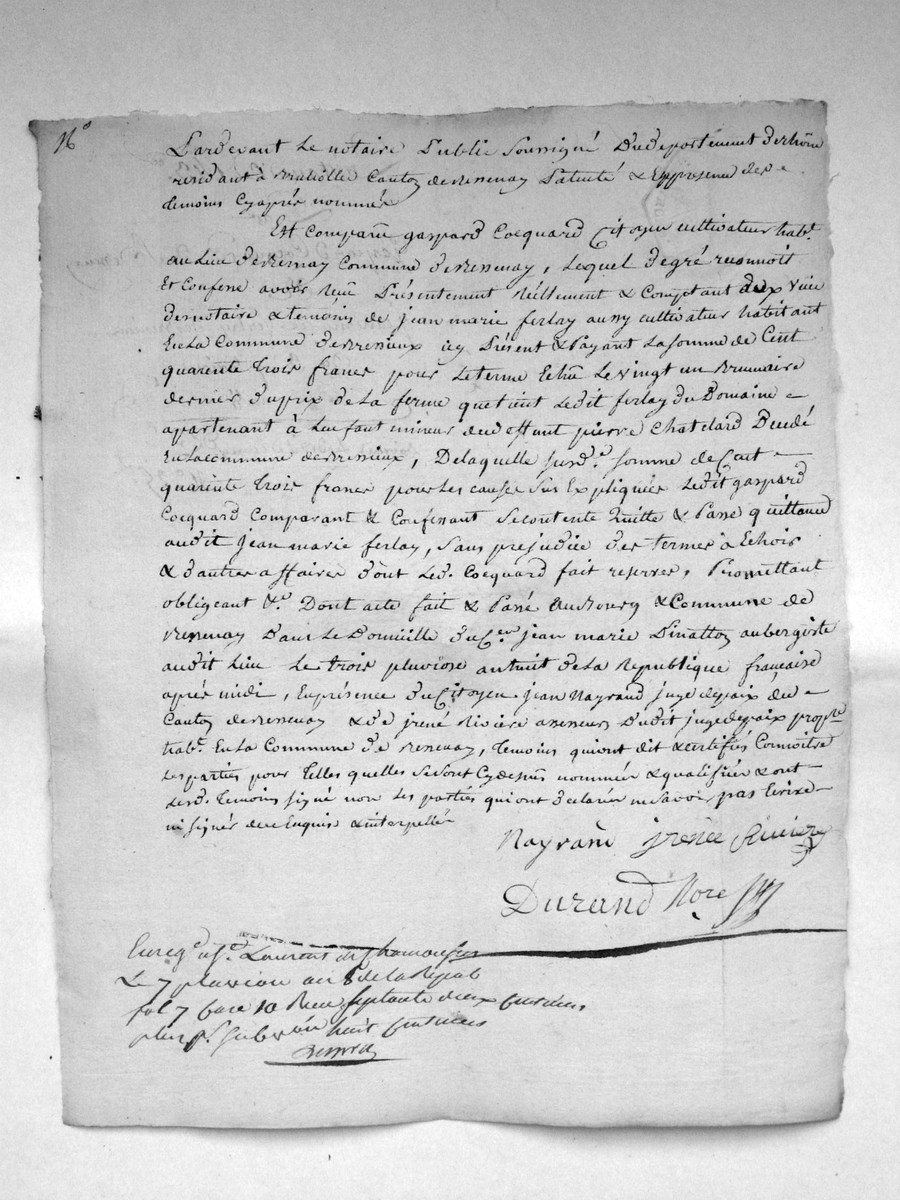 N°
Pardevant Le notaire Public Soussigné Du département du rhône
residant à Canton de Bessenay Patenté & En présence des
témoins Cyaprés nommés
Est Comparû gaspard Cocquard Citoyen cultivateur hab.t
au Lieu de Commune de Bessenay, Lequel de gré reconnoit
Et Confesse avoir Reçu Présentement Réellement & Comptant aux Vüe
de notaire & témoins de jean marie ferlay aussy cultivateur habitant
En La Commune de Bressieux icy Présent & Payant La somme de Cent
quarente trois francs pour Le terme Echû Le vingt un Brumaire
dernier Du prix de La ferme que tient Ledit ferlay Du Domaine
apartenant à L'enfant mineur de deffunt pierre Chatelard Situé
En La commune de Bressieux, De laquelle susd.e somme de Cent
quarente trois francs pour Les causes Sus Expliquées Ledit gaspard
Cocquard Comparant & Confessant Se contente Quitte & Passe quittance
audit jean marie ferlay, Sans prejudice des termes à Echoir
& d'autres affaires dont Led. Cocquard fait reserves, Promettant
obligeant &c. Dont acte fait & Passé au Bourg & Commune de
Bessenay Dans Le Domicille du C.en jean marie Pinatton aubergiste
audit Lieu Le trois pluviose an huit de La Republique française
aprés midi, En présence du Citoyen jean Nayrand juge de paix du
Canton de Bessenay & de jrené Riviére assesseur Dudit juge de paix prop.re
hab.t En La Commune de Bessenay, témoins qui ont dit & certifiés Connoitre
Les parties pour telles quelles Se Sont Cy dessus nommées & qualifiées & ont
Lesd. témoins signé non Les parties qui ont déclarés ne Savoir pas Ecrire
ni signer de ce Enquis & interpellés
Nayrand jrénée Riviere
Durand No.re
Enreg.é à S.t Laurent de Chamousset
Le 7 pluviose an 8 de la Répub
fol 7 Case 10 Reçu Septante deux Centimes
plus p.r Subvon huit Centimes